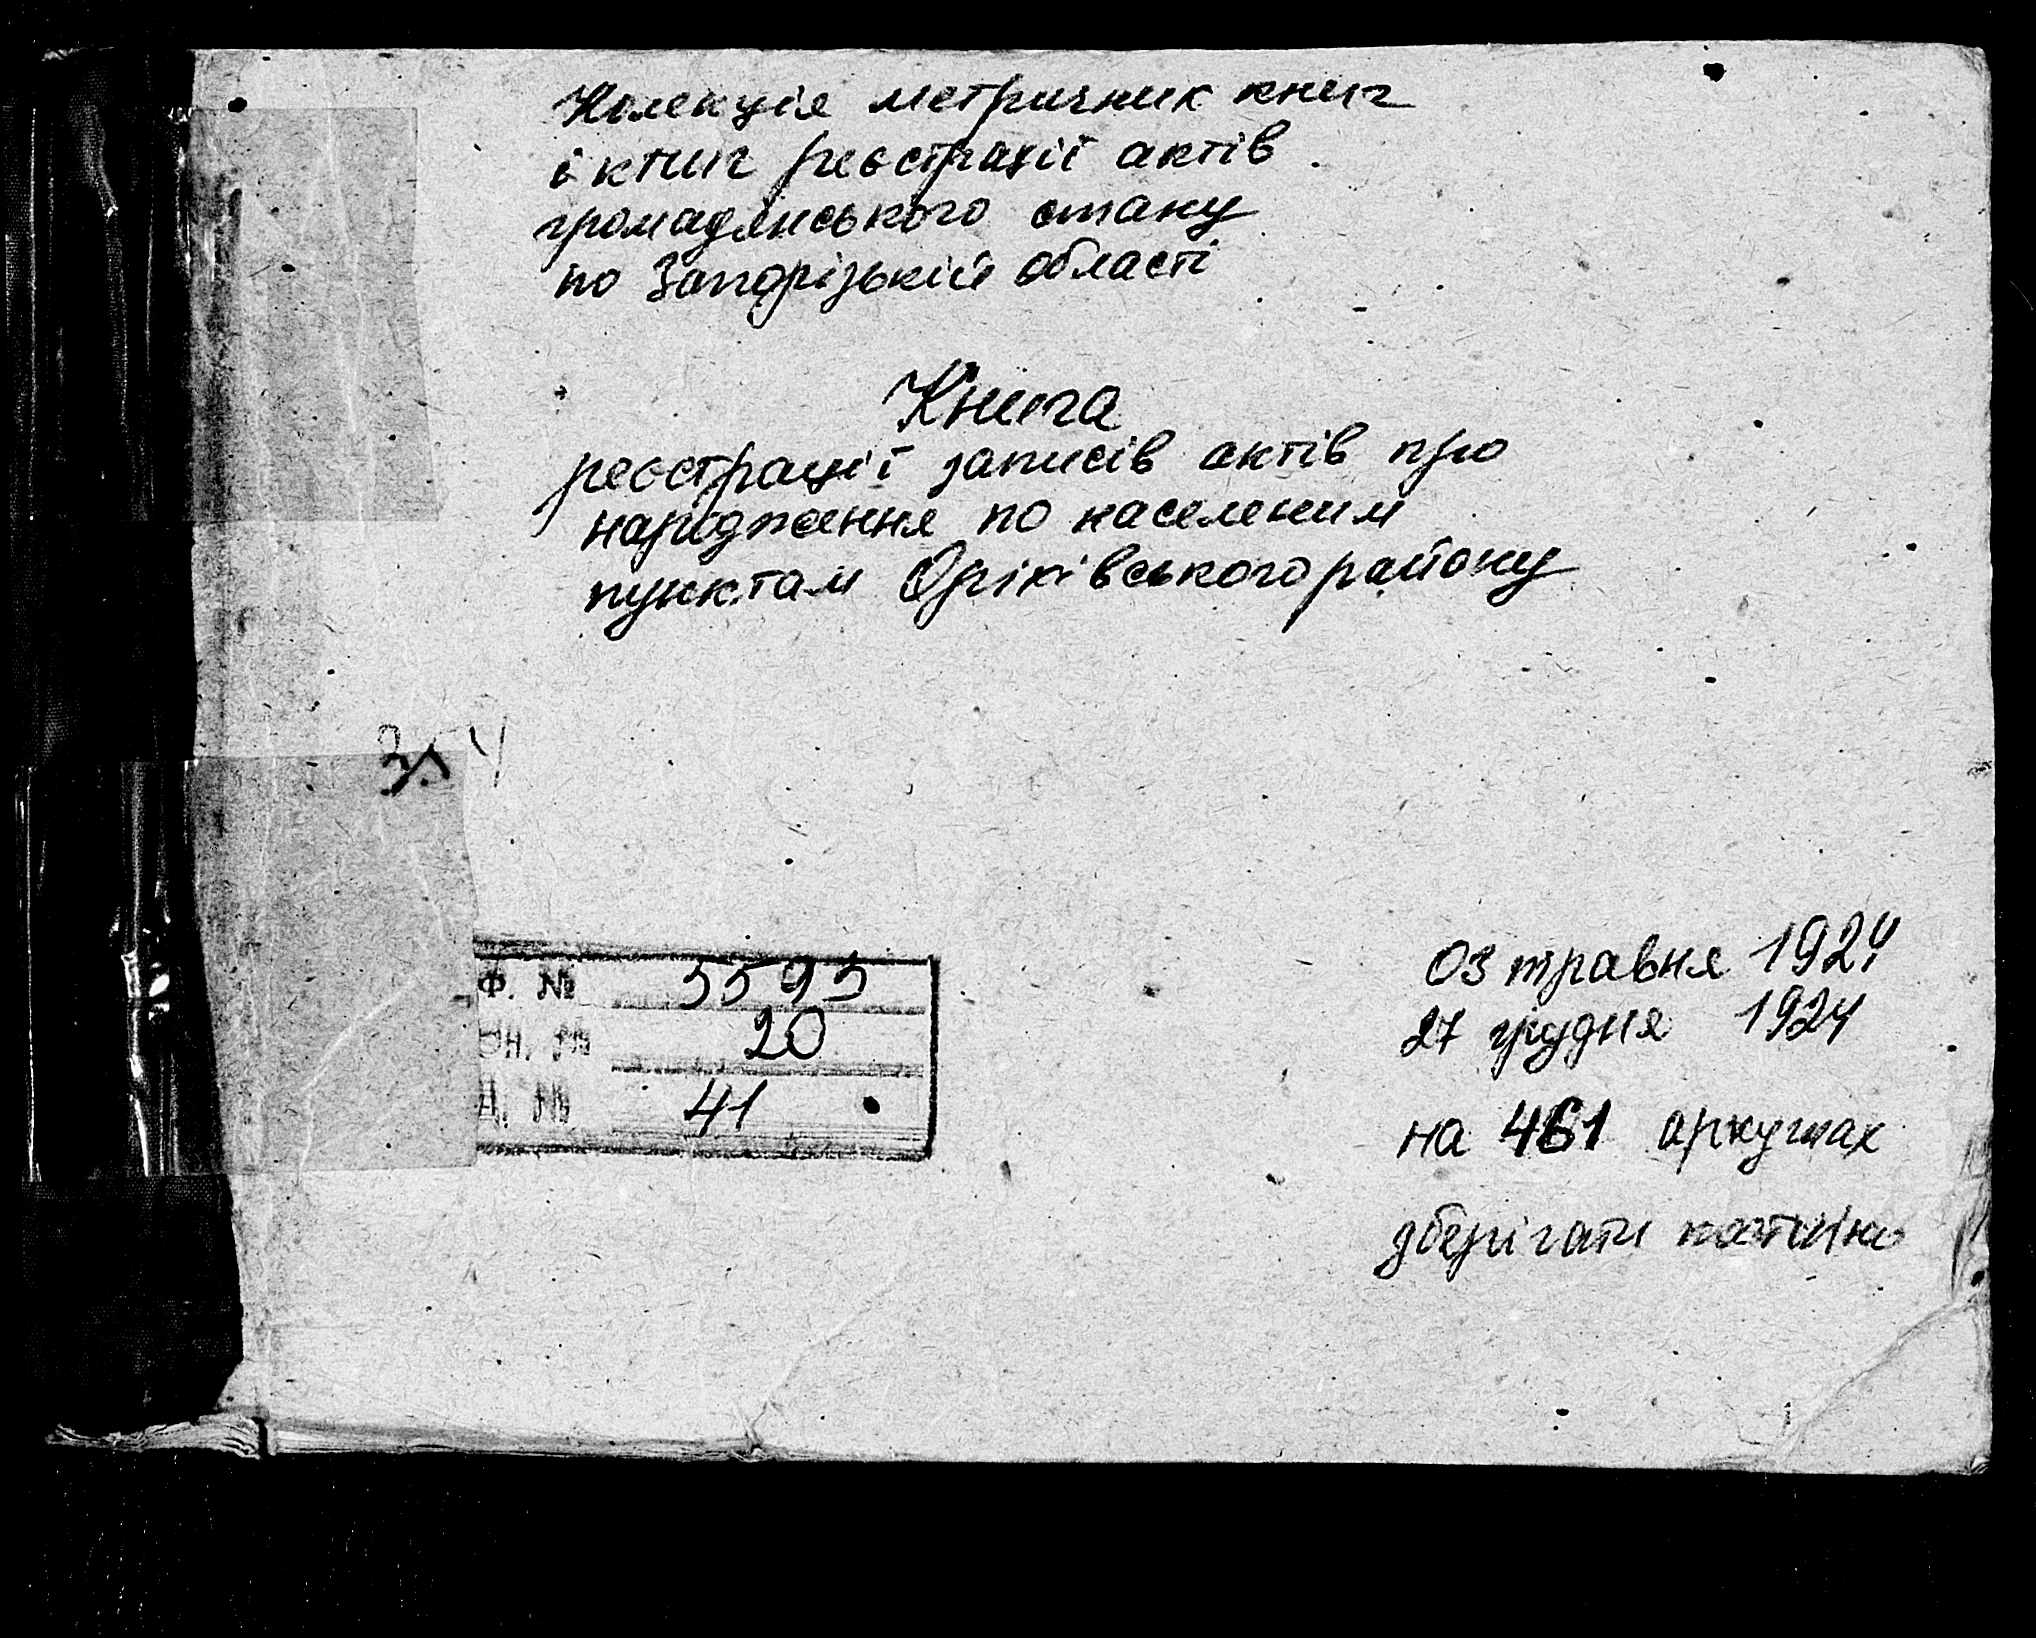 Колекція метричних книг
і книг реєстрації актів
громадянського стану
по Запорізькій області
Книга
реєстрації записів актів про
народження по населеним
пунктам Оріхівського району
Ф. № 5593
Оп. № 20
Д. № 41
03 травня 1924
27 грудня 1924
на 461 аркушах
зберігати постійно